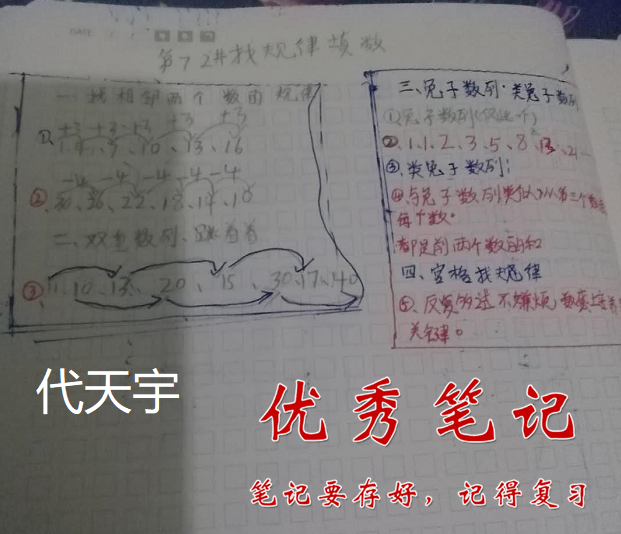 DATE
第7讲找规律填数
一、找相邻两个数的规律
+3 +3 +3 +3 +3
①、1、4、7、10、13、16
-4 -4 -4 -4 -4
②、30、26、22、18、14、10
二、双重数列、跳着看
③ 11、10、13、20、15、30、17、40
三、兔子数列·类兔子数列
①兔子数列(仅此一个)
②、1、1、2、3、5、8、13、21…
③、类兔子数列:
④、与兔子数列类似,从第三个数
每个数。
都是前两个数的和
四、宫格找规律
⑤、反复多试不嫌烦
关键。
代天宇
优秀笔记
笔记要存好,记得复习